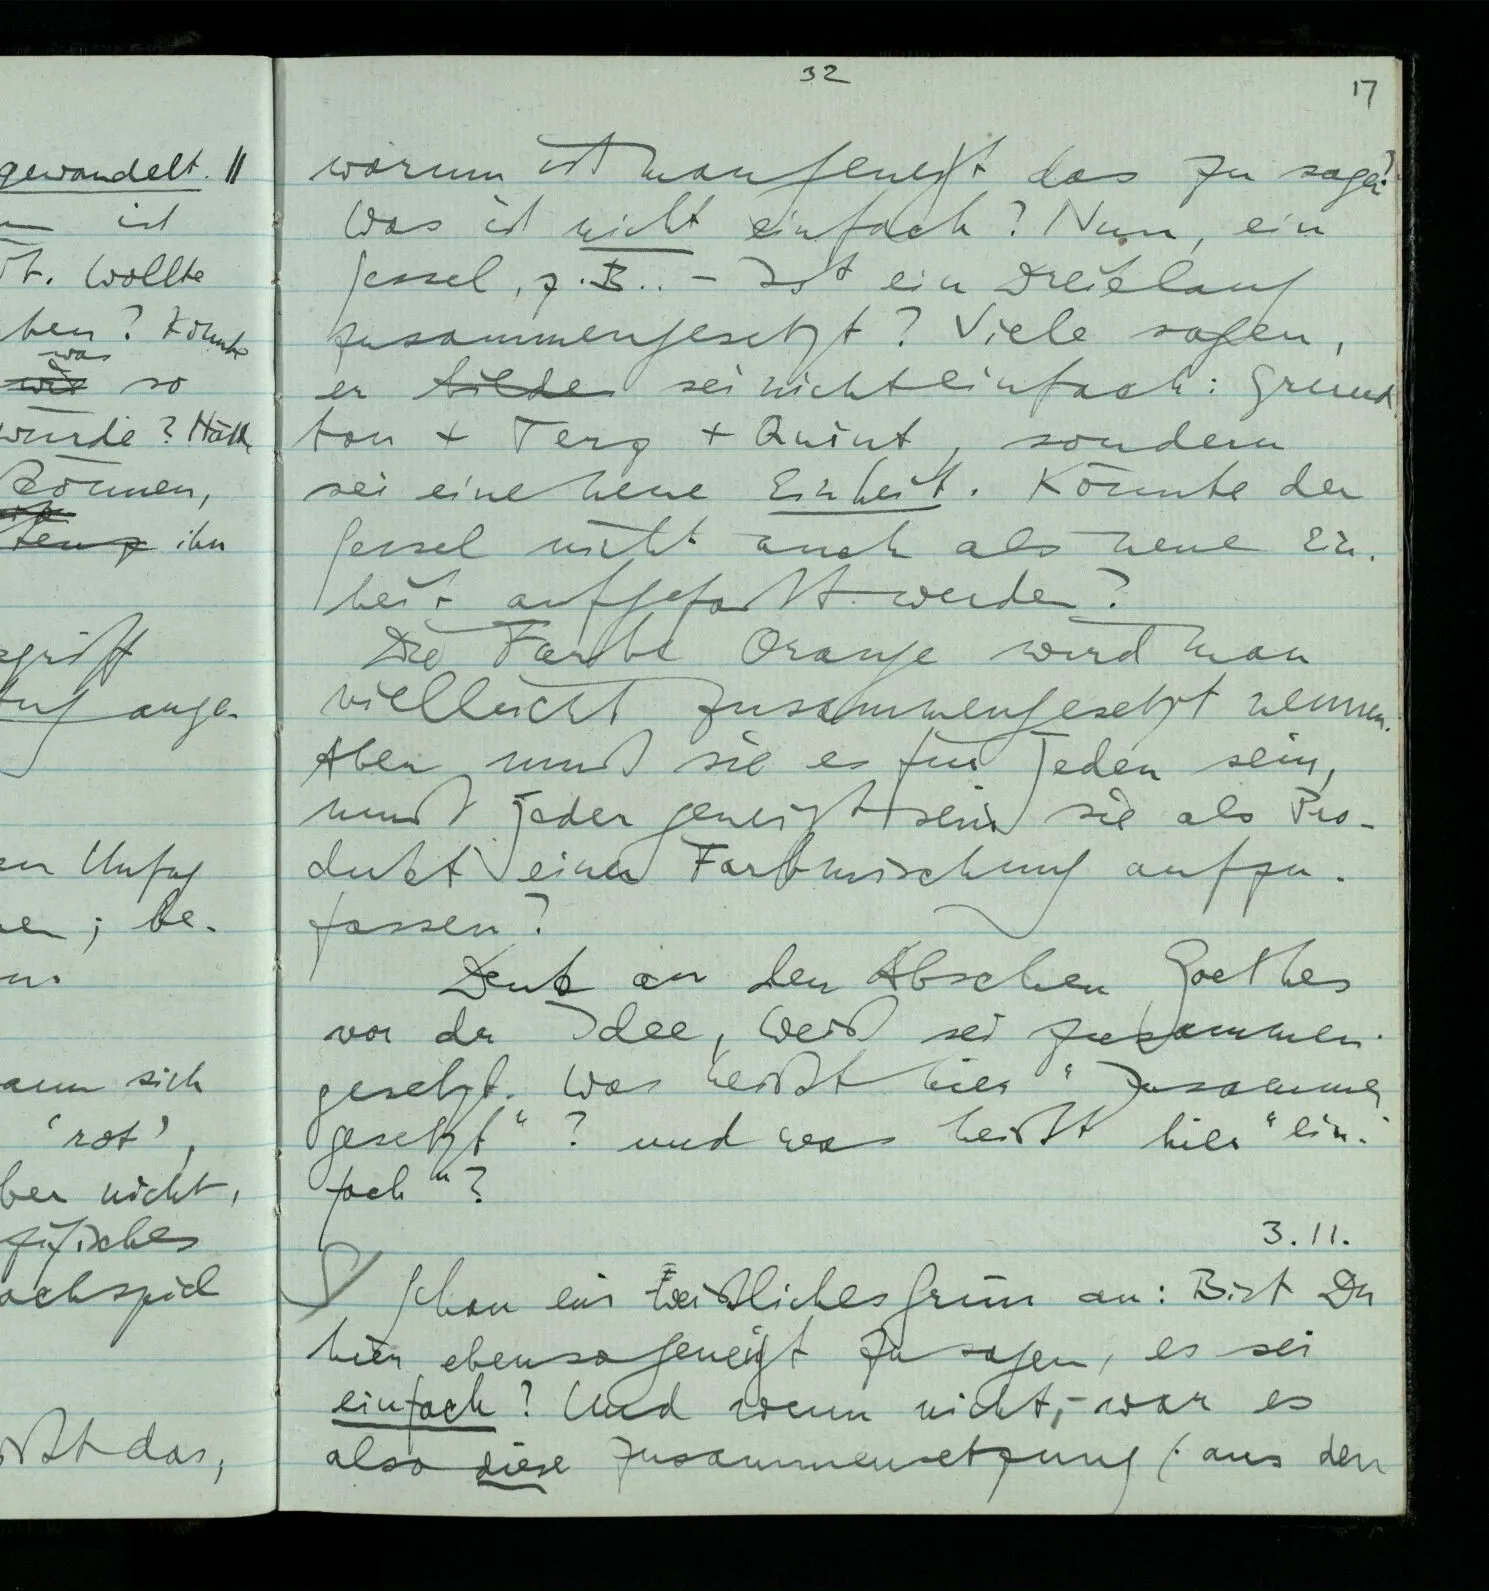 gewandelt. ||
ist
Wollte
ben? Könnte
was
so
würde? Hätte
können,
ihn
griff
auf ange-
Unfug
; be-
sich
'rot',
ber nicht,
das,
32
17
warum ist man geneigt das zu sagen?
Was ist nicht einfach? Nun, ein
Sessel, z.B.. – Ist ein Dreiklang
zusammengesetzt? Viele sagen,
er bilde sei nicht einfach: Grund
ton + Terz + Quint, sondern
sei eine neue Einheit. Könnte der
Sessel nicht auch als neue Ein-
heit aufgefaßt werden?
Die Farbe Orange wird man
vielleicht zusammengesetzt nennen.
Aber muß sie es für jeden sein,
muß jeder geneigt sein sie als Pro-
dukt einer Farbmischung aufzu-
fassen?
Denk an den Abscheu Goethes
vor der Idee, Weiß sei zusammen-
gesetzt. Was heißt hier "zusammen
gesetzt"? und was heißt hier "ein-
fach"?
3.11.
Schau ein weißliches Grün an: Bist Du
hier ebenso geneigt zu sagen, es sei
einfach? Und wenn nicht, – war es
also diese Zusammensetzung (aus der